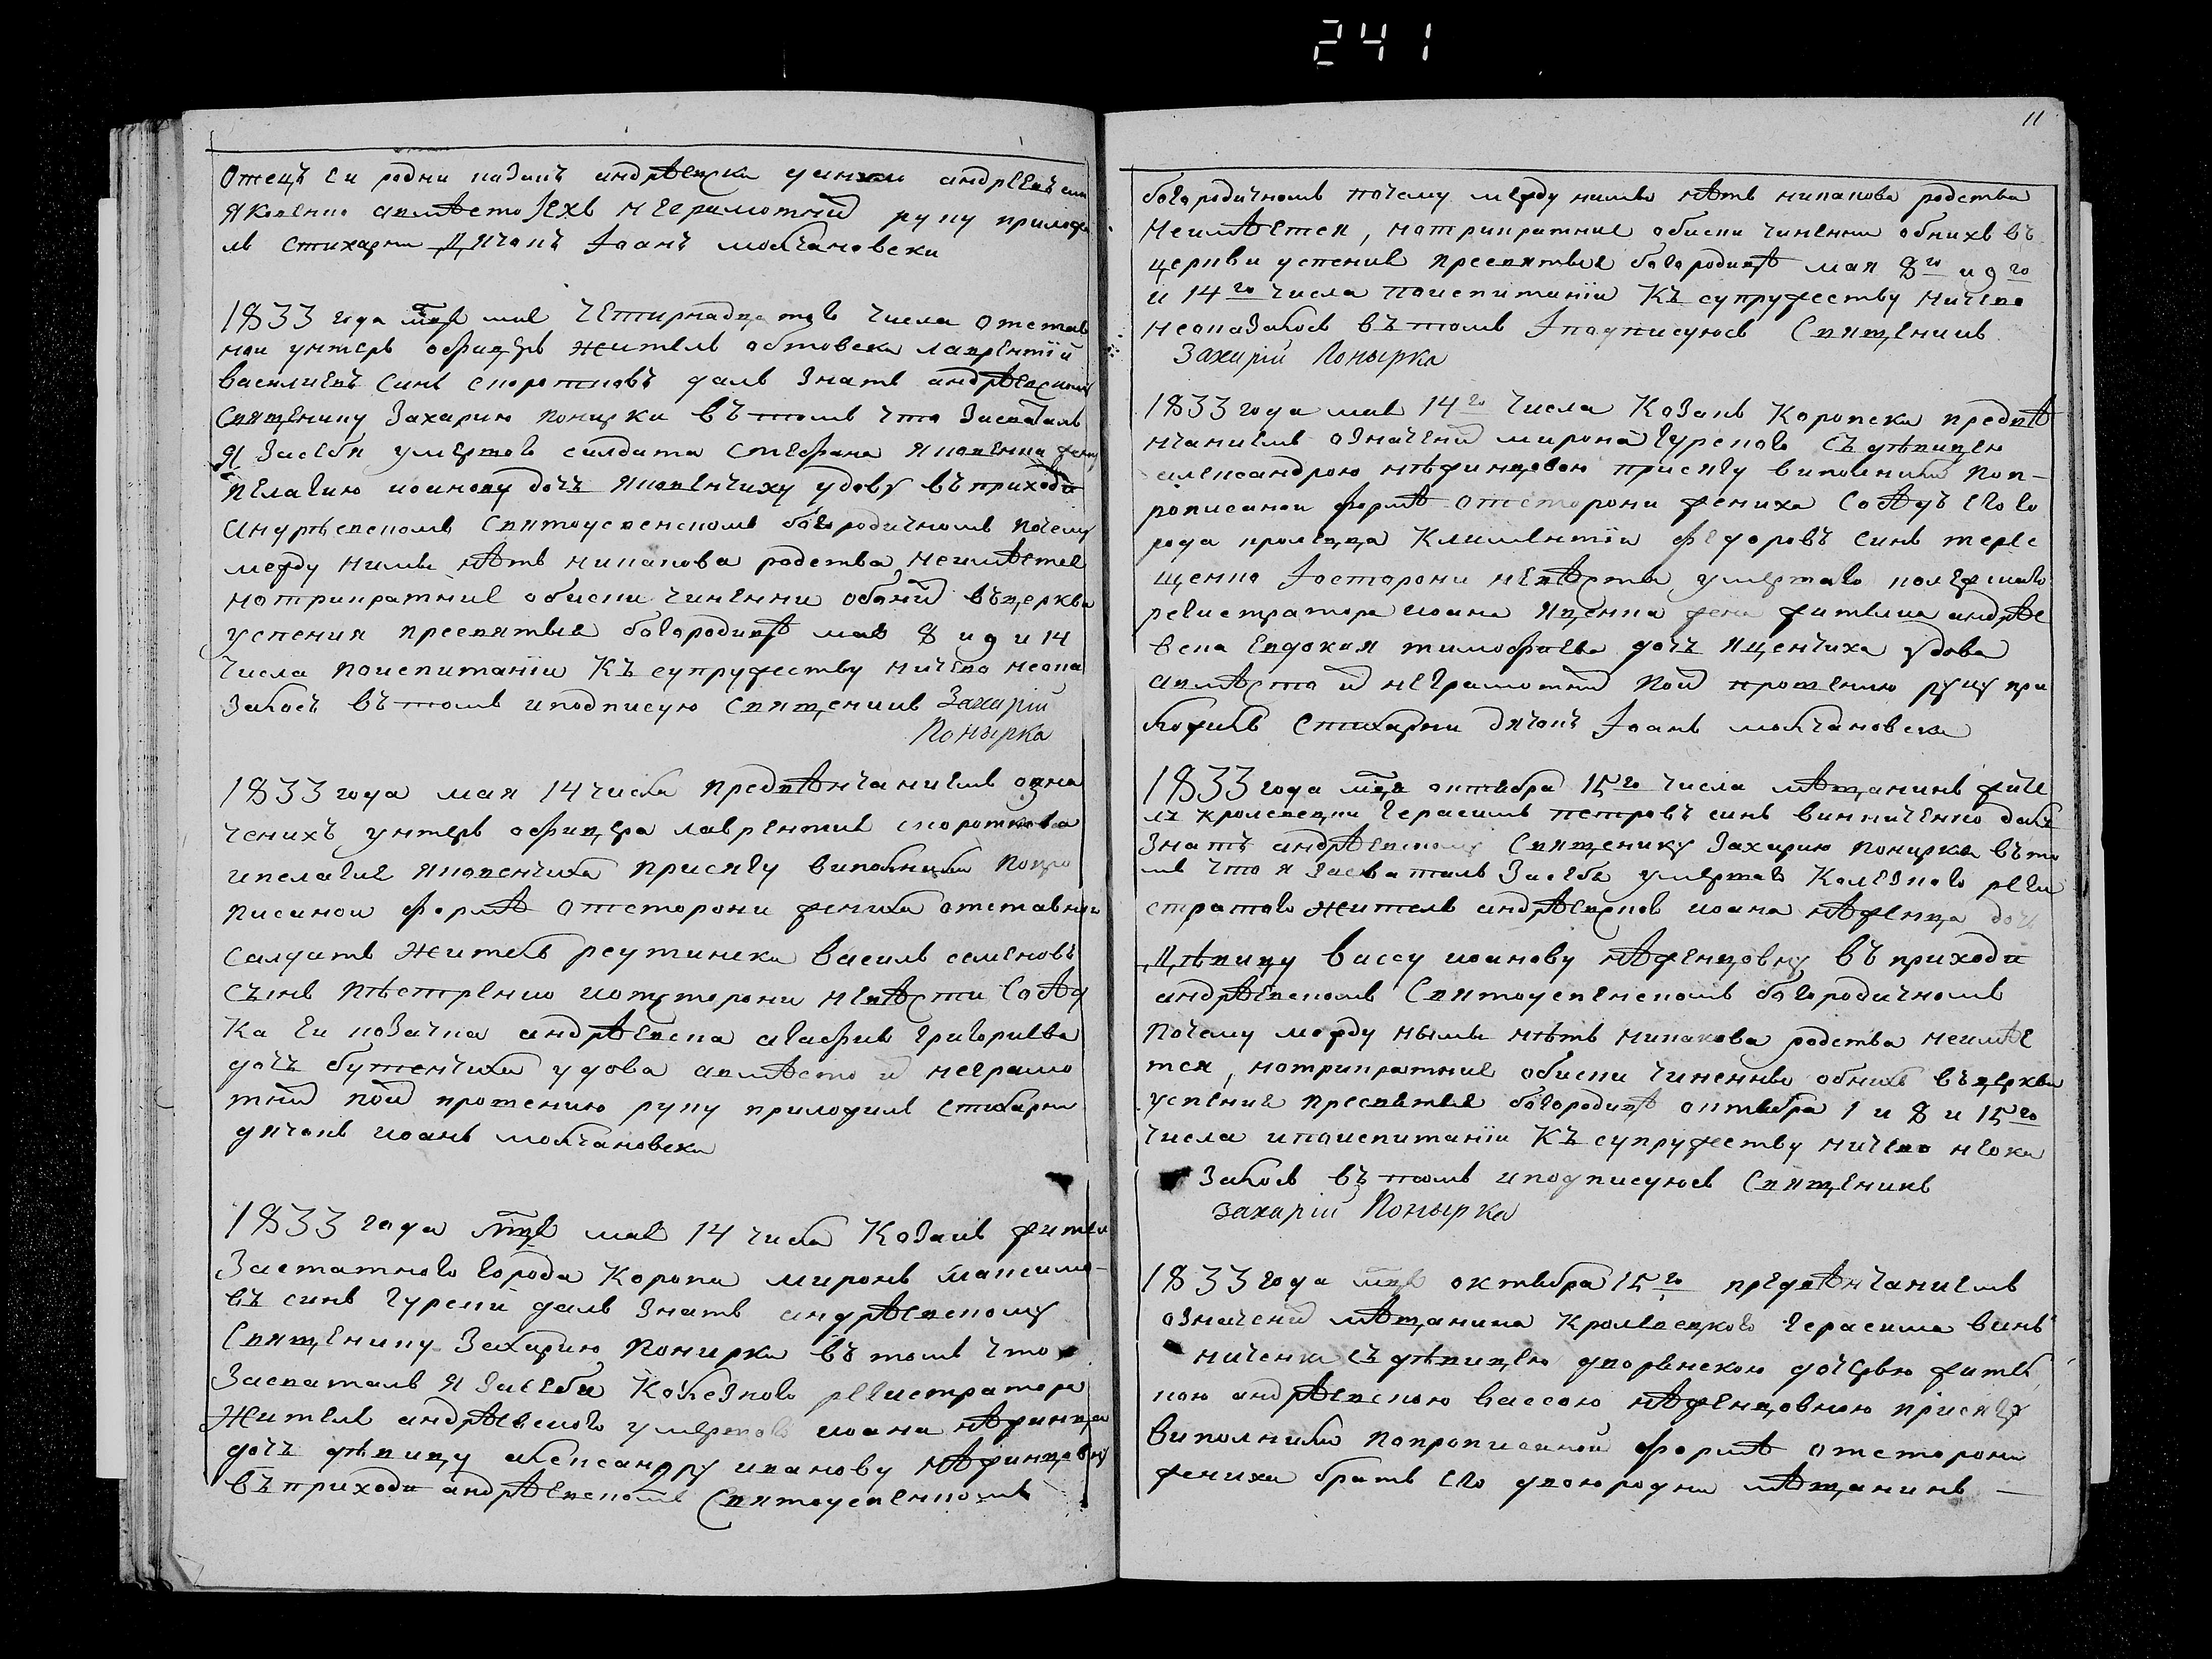 241
11
Отецъ еи родни казакъ андрѣевски данило андреевъ син
Яковенко авмѣсто Iехъ неграмотній руку приложи
лъ стихарни Дячокъ Iоанъ молчановски
1833 года мца мая Четирнадцатого числа отстав
нои унтеръ офицеръ житель обтовски лаврентій
василиевъ синъ скоротковъ далъ знать андрѣевскому
Священику Захарию понирки въ томъ что засваталъ
Я засебя умертого салдата стефана Яковенка жену
Пелагию иоанову дочъ Яковенчиху удову въ приходи
андрѣевскомъ Святоуспенскомъ богородичномъ почему
между ними нѣтъ никакова родства неимѣется
мотрикратние обиски чиненни обоній въцеркви
успения пресвятыя богородицѣ мая 8 и 9 и 14
числа поиспитаніи Къ супружеству ничего неока
залосъ въ томъ иподписую Священикъ Захарій
Понырка
1833 года мая 14 числа предвѣнчаниемъ озна
ченихъ унтеръ офицера лаврентия скороткова
ипелагия яковенчиха присягу виполнили попро
писанои формѣ отсторони жениха отставнои
салдатъ житель реутински василь семеновъ
сынъ пѣстренко иотсторони невѣсти сосѣд
ка еи козачка андрѣевска агафия григориева
дочъ бутенчиха удова авмѣсто и неграмо
тній пой прошению руку приложилъ стихарни
дячокъ иоанъ молчановски
1833 года мця мая 14 числа Козакъ жител
Застатного города Коропа миронъ максимо-
въ синъ гурский далъ знать андрѣевскому
Священику Захарию Понирки въ томъ что
Засваталъ я засебя Колезкого регистратора
Жителя андрѣевского умертого иоана нѣжинца
дочъ дѣвицу александру иванову нѣжинцовну
въ приходи андрѣевскомъ Святоуспенскомъ
богородичномъ почему между ними нѣтъ никакова родства
Неимѣется, мотрикратние обиски чиненни обнихъ въ
церкви успения пресвятыя богородицѣ мая 8го и 9го
и 14го числа поиспитаніи Къ супружеству ничего
неоказалось въ томъ Iподписуюсь Священикъ
Захарій Понырка
1833 года мая 14го числа Козакъ Коропски предвѣ
нчаниемъ означений мирона гурского съ дѣвицею
александрою нѣжинцовою присягу виполнили поп-
рописанои формѣ отсторони жениха сосѣдъ его го
рода кролевца Климентій федоровъ синъ тере
щенко Iосторони невѣсти умертаго колежского
регистратора иоана Яценка жена жителка андрѣе
вска евдокия тимофиева дочъ Яценчиха удова
авмѣсто и неграмотній пой прошению руку при
ложилъ стихарни дячокъ Iоанъ молчановски
1833 года мця октября 15го числа мѣщанинъ жите
ль кролевецки герасимъ петровъ синъ винниченко далъ
знать андрѣевскому Священику Захарию Понирки въ то
мъ что я засваталъ засебя умертаго Колезкого реги
стратого жителя андрѣевсков иоана нѣженца дочъ
Дѣвицу вассу иоанову нѣженцовну въ приходи
андрѣевскомъ Святоуспенскомъ богородичномъ
почему между нымы нѣтъ никакова родства неимѣе
тся, мотрикратние обиски чиненны обнихъ въ церкви
успения пресвятыя богородицѣ октября 1 и 8 и 15го
числа ипоиспитаніи Къ супружеству ничего неока
залось въ томъ иподписуюсь Священикъ
захарій Понырка
1833 года мця октября 15го предвѣнчаниемъ
означений мѣщанина Кролевецкого герасима винъ
ниченка съ дѣвицею дворянскою дочерью житель
кою андрѣевскою вассою нѣженцовною присягу
виполнили попрописанной формѣ отсторони
жениха братъ его двоюродни мѣщанинъ —